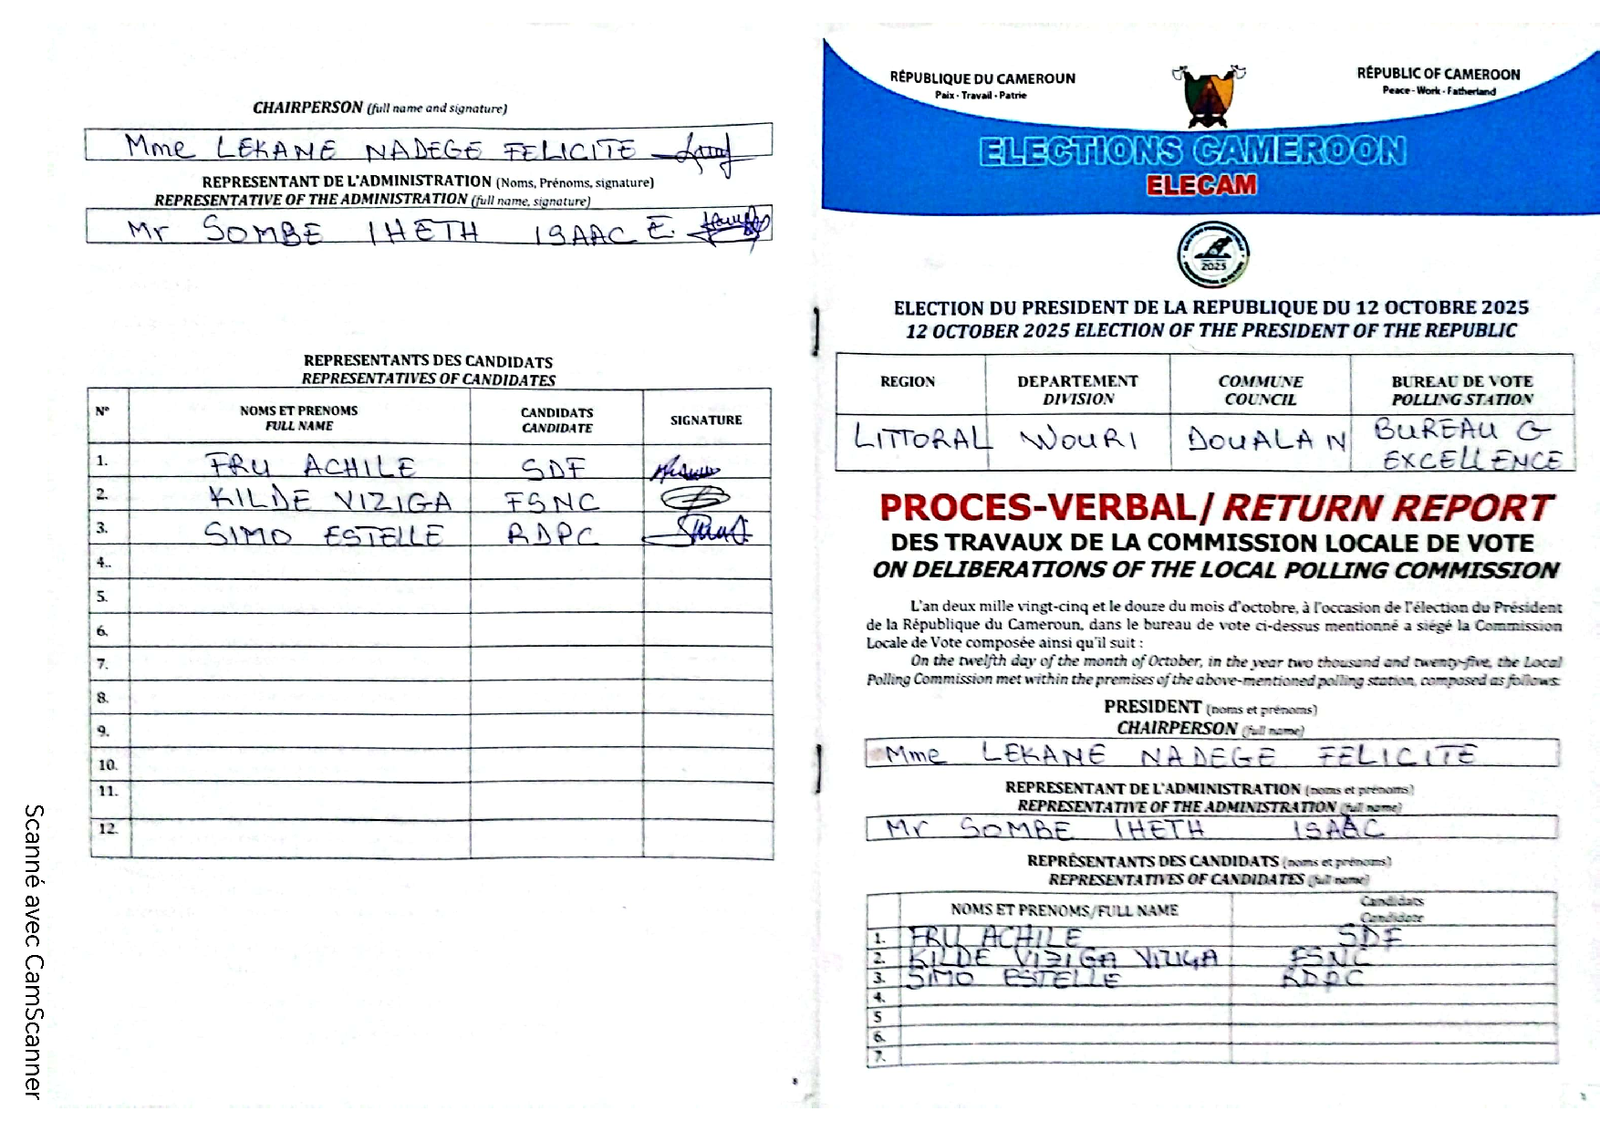 CHAIRPERSON (full name and signature)
Mme LEKANE NADEGE FELICITE
REPRESENTANT DE L'ADMINISTRATION (Noms, Prénoms, signature)
REPRESENTATIVE OF THE ADMINISTRATION (full name, signature)
Mr SOMBE IHETH ISAAC E.
REPRESENTANTS DES CANDIDATS
REPRESENTATIVES OF CANDIDATES
N° NOMS ET PRENOMS CANDIDATS SIGNATURE
FULL NAME CANDIDATE
1. FRU ACHILE SDF
2. KILDE VIZIGA FSNC
3. SIMO ESTELLE RDPC
4..
5.
6.
7.
8.
9.
10.
11.
12.
8
Scanné avec CamScanner
RÉPUBLIQUE DU CAMEROUN
Paix - Travail - Patrie
RÉPUBLIC OF CAMEROON
Peace - Work - Fatherland
ELECTIONS CAMEROON
ELECAM
2025
ELECTION DU PRESIDENT DE LA REPUBLIQUE DU 12 OCTOBRE 2025
12 OCTOBER 2025 ELECTION OF THE PRESIDENT OF THE REPUBLIC
REGION DEPARTEMENT COMMUNE BUREAU DE VOTE
DIVISION COUNCIL POLLING STATION
LITTORAL WOURI DOUALA N BUREAU G
EXCELLENCE
PROCES-VERBAL/ RETURN REPORT
DES TRAVAUX DE LA COMMISSION LOCALE DE VOTE
ON DELIBERATIONS OF THE LOCAL POLLING COMMISSION
L'an deux mille vingt-cinq et le douze du mois d'octobre, à l'occasion de l'élection du Président
de la République du Cameroun, dans le bureau de vote ci-dessus mentionné a siégé la Commission
Locale de Vote composée ainsi qu'il suit :
On the twelfth day of the month of October, in the year two thousand and twenty-five, the Local
Polling Commission met within the premises of the above-mentioned polling station, composed as follows:
PRESIDENT (noms et prénoms)
CHAIRPERSON (full name)
Mme LEKANE NADEGE FELICITE
REPRESENTANT DE L'ADMINISTRATION (noms et prénoms)
REPRESENTATIVE OF THE ADMINISTRATION (full name)
Mr SOMBE IHETH ISAAC
REPRÉSENTANTS DES CANDIDATS (noms et prénoms)
REPRESENTATIVES OF CANDIDATES (full name)
NOMS ET PRENOMS/FULL NAME Candidats
Candidate
1. FRU ACHILE SDF
2. KILDE VIZIGA VIZIGA FSNC
3. SIMO ESTELLE RDPC
4.
5
6.
7.